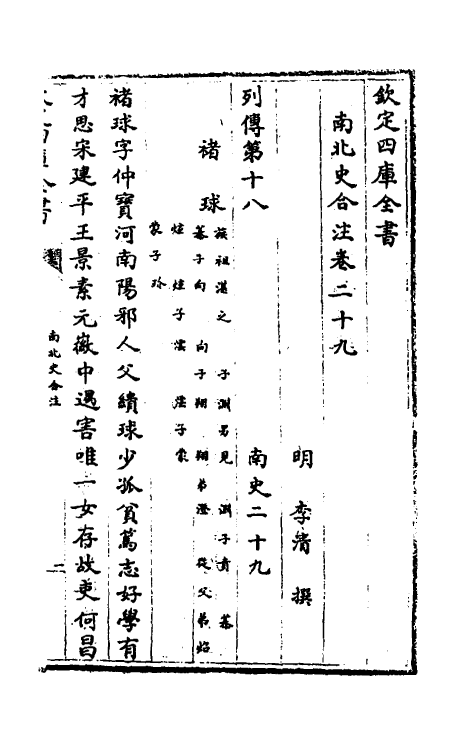 欽定四庫全書
南北史合注卷二十九
明 李清 撰
列傳第十八 南史二十九
褚球 族祖湛之 子淵另見 淵子賁 蓁
蓁子向 向子翔 翔弟澄 從父弟炤
炫 炫子澐 澐子蒙
蒙子玠
褚球字仲寶河南陽邪人父繢球少孤貧篤志好學有
才思宋建平王景素元徽中遇害唯一女存故吏何昌
南北史合注